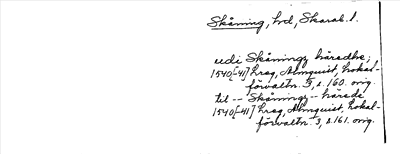 Skåning, hrd, Skarab. l.
udi Skåningz häredhe;
1540[-41] hrsg, Almquist, Lokal-
förvaltn. 3, s. 160. orig.
til -- Skåningz -- härede
1540[-41] hrsg, Almquist, Lokal-
förvaltn. 3, s. 161. orig.